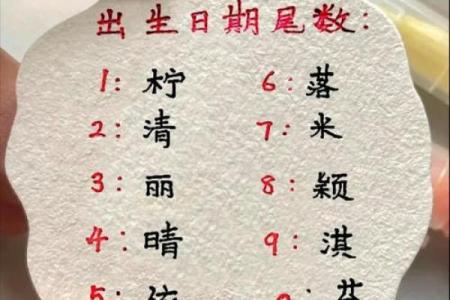 出生日期尾数:
1: 柠 6: 落
2: 清 7: 米
3: 丽 8: 颖
4: 晴 9: 淇
5: 依